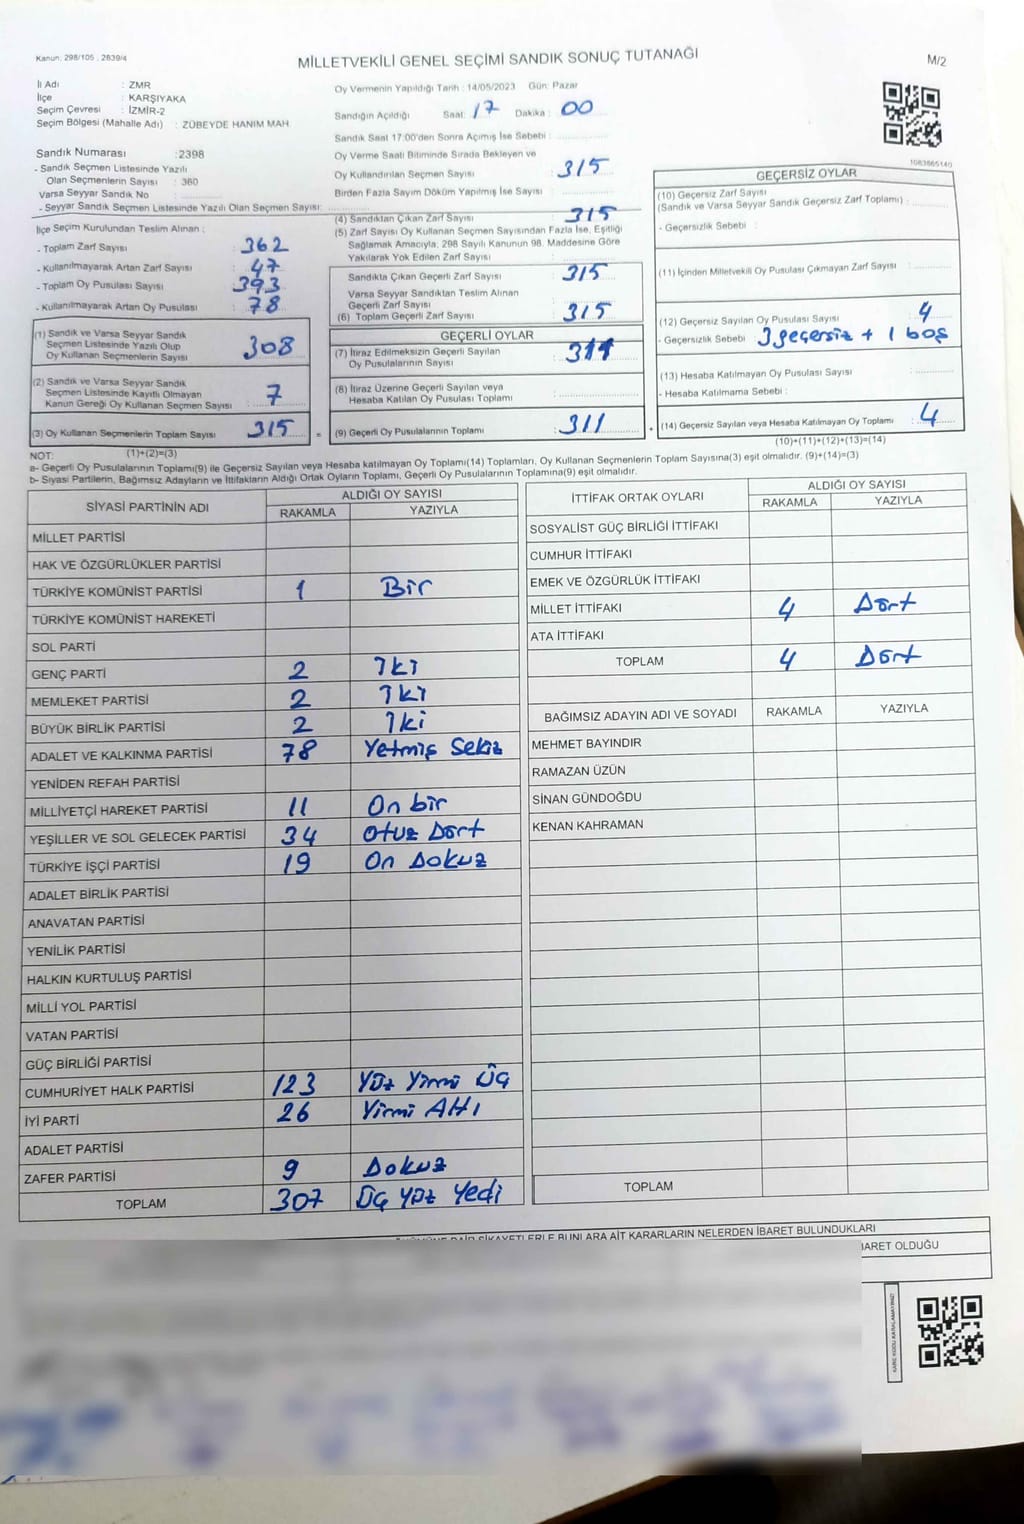 Kanun: 298/105 , 2839/4
MİLLETVEKİLİ GENEL SEÇİMİ SANDIK SONUÇ TUTANAĞI
M/2
İl Adı : ZMR
İlçe : KARŞIYAKA
Seçim Çevresi : İZMİR-2
Seçim Bölgesi (Mahalle Adı) : ZÜBEYDE HANIM MAH.
Sandık Numarası : 2398
- Sandık Seçmen Listesinde Yazılı
Olan Seçmenlerin Sayısı : 360
Varsa Seyyar Sandık No
- Seyyar Sandık Seçmen Listesinde Yazılı Olan Seçmen Sayısı:
İlçe Seçim Kurulundan Teslim Alınan :
- Toplam Zarf Sayısı : 362
- Kullanılmayarak Artan Zarf Sayısı : 47
- Toplam Oy Pusulası Sayısı : 393
- Kullanılmayarak Artan Oy Pusulası : 78
(1) Sandık ve Varsa Seyyar Sandık
Seçmen Listesinde Yazılı Olup
Oy Kullanan Seçmenlerin Sayısı : 308
(2) Sandık ve Varsa Seyyar Sandık
Seçmen Listesinde Kayıtlı Olmayan
Kanun Gereği Oy Kullanan Seçmen Sayısı : 7
(3) Oy Kullanan Seçmenlerin Toplam Sayısı : 315
(1)+(2)=(3)
Oy Vermenin Yapıldığı Tarih : 14/05/2023 Gün: Pazar
Sandığın Açıldığı Saat: 17 Dakika : 00
Sandık Saat 17:00'den Sonra Açımış İse Sebebi :
Oy Verme Saati Bitiminde Sırada Bekleyen ve
Oy Kullandırılan Seçmen Sayısı : 315
Birden Fazla Sayım Döküm Yapılmış İse Sayısı :
(4) Sandıktan Çıkan Zarf Sayısı : 315
(5) Zarf Sayısı Oy Kullanan Seçmen Sayısından Fazla İse, Eşitliği
Sağlamak Amacıyla, 298 Sayılı Kanunun 98. Maddesine Göre
Yakılarak Yok Edilen Zarf Sayısı :
Sandıkta Çıkan Geçerli Zarf Sayısı : 315
Varsa Seyyar Sandıktan Teslim Alınan
Geçerli Zarf Sayısı
(6) Toplam Geçerli Zarf Sayısı : 315
GEÇERLİ OYLAR
(7) İtiraz Edilmeksizin Geçerli Sayılan
Oy Pusulasının Sayısı : 311
(8) İtiraz Üzerine Geçerli Sayılan veya
Hesaba Katılan Oy Pusulası Toplamı :
= (9) Geçerli Oy Pusulalarının Toplamı : 311
1083865140
GEÇERSİZ OYLAR
(10) Geçersiz Zarf Sayısı
(Sandık ve Varsa Seyyar Sandık Geçersiz Zarf Toplamı) :
- Geçersizlik Sebebi :
(11) İçinden Milletvekili Oy Pusulası Çıkmayan Zarf Sayısı :
(12) Geçersiz Sayılan Oy Pusulası Sayısı : 4
- Geçersizlik Sebebi 3 geçersiz + 1 boş
(13) Hesaba Katılmayan Oy Pusulası Sayısı :
- Hesaba Katılmama Sebebi :
+ (14) Geçersiz Sayılan veya Hesaba Katılmayan Oy Toplamı : 4
(10)+(11)+(12)+(13)=(14)
NOT:
a- Geçerli Oy Pusulalarının Toplamı(9) ile Geçersiz Sayılan veya Hesaba katılmayan Oy Toplamı(14) Toplamları, Oy Kullanan Seçmenlerin Toplam Sayısına(3) eşit olmalıdır. (9)+(14)=(3)
b- Siyasi Partilerin, Bağımsız Adayların ve İttifakların Aldığı Ortak Oyların Toplamı, Geçerli Oy Pusulalarının Toplamına(9) eşit olmalıdır.
SİYASİ PARTİNİN ADI ALDIĞI OY SAYISI
RAKAMLA YAZIYLA
MİLLET PARTİSİ
HAK VE ÖZGÜRLÜKLER PARTİSİ
TÜRKİYE KOMÜNİST PARTİSİ 1 Bir
TÜRKİYE KOMÜNİST HAREKETİ
SOL PARTİ
GENÇ PARTİ 2 İki
MEMLEKET PARTİSİ 2 İki
BÜYÜK BİRLİK PARTİSİ 2 İki
ADALET VE KALKINMA PARTİSİ 78 Yetmiş Sekiz
YENİDEN REFAH PARTİSİ
MİLLİYETÇİ HAREKET PARTİSİ 11 On bir
YEŞİLLER VE SOL GELECEK PARTİSİ 34 Otuz Dört
TÜRKİYE İŞÇİ PARTİSİ 19 On Dokuz
ADALET BİRLİK PARTİSİ
ANAVATAN PARTİSİ
YENİLİK PARTİSİ
HALKIN KURTULUŞ PARTİSİ
MİLLİ YOL PARTİSİ
VATAN PARTİSİ
GÜÇ BİRLİĞİ PARTİSİ
CUMHURİYET HALK PARTİSİ 123 Yüz Yirmi Üç
İYİ PARTİ 26 Yirmi Altı
ADALET PARTİSİ
ZAFER PARTİSİ 9 Dokuz
TOPLAM 307 Üç Yüz Yedi
İTTİFAK ORTAK OYLARI ALDIĞI OY SAYISI
RAKAMLA YAZIYLA
SOSYALİST GÜÇ BİRLİĞİ İTTİFAKI
CUMHUR İTTİFAKI
EMEK VE ÖZGÜRLÜK İTTİFAKI
MİLLET İTTİFAKI 4 Dört
ATA İTTİFAKI
TOPLAM 4 Dört
BAĞIMSIZ ADAYIN ADI VE SOYADI RAKAMLA YAZIYLA
MEHMET BAYINDIR
RAMAZAN ÜZÜN
SİNAN GÜNDOĞDU
KENAN KAHRAMAN
TOPLAM
ŞİKAYETLERLE BUNLARA AİT KARARLARIN NELERDEN İBARET BULUNDUKLARI
OLDUĞU